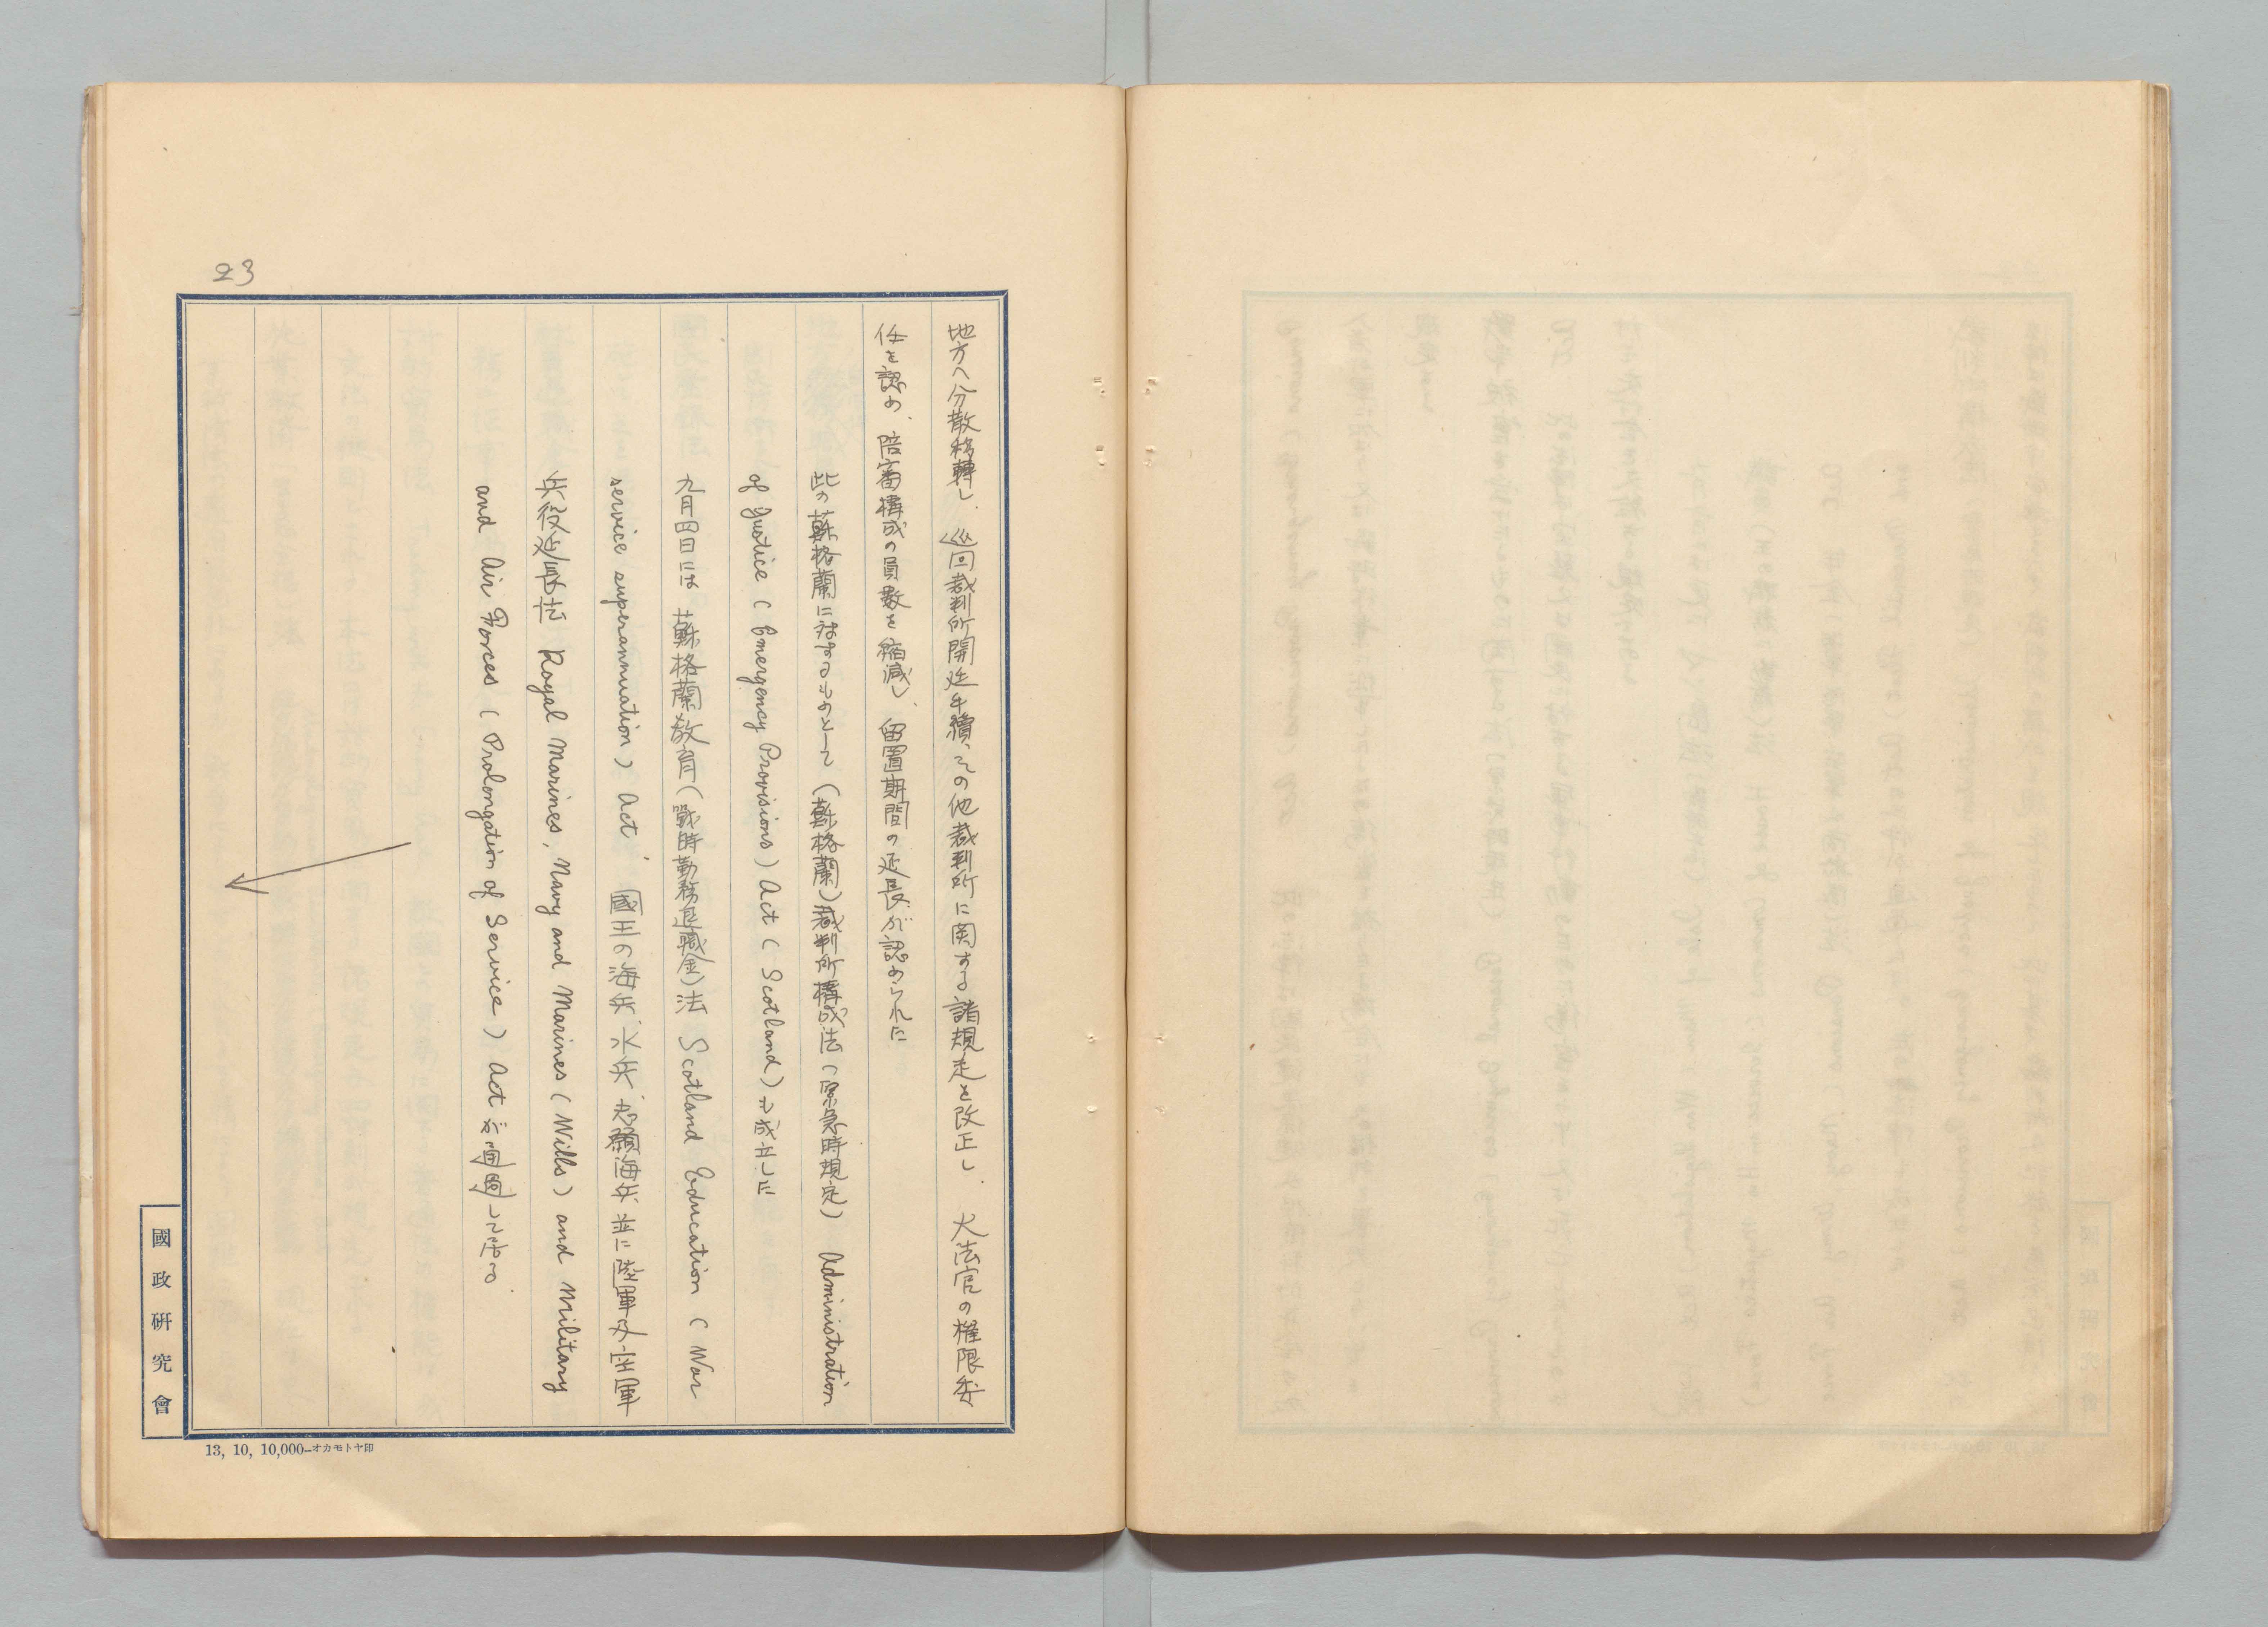 23
地方へ分散移轉し、巡回裁判所開廷手續、その他裁判所に関する諸規定を改正し、大法官の権限委
任を認め、陪審構成の員数を縮減し、留置期間の延長が認められた
此の蘇格蘭に対するものとして（蘇格蘭）裁判所構成法（緊急時規定） Administration
of Justice (Emergency Provisions) Act (Scotland) も成立した
九月四日には 蘇格蘭教育（戰時勤務退職金）法 Scotland Education (War
service superannuation) Act、國王の海兵、水兵、志願海兵、並に陸軍及空軍
兵役延長法 Royal Marines, Navy and Marines (Wills) and Military
and Air Forces (Prolongation of Service) Act が通過して居る
國政研究會
13, 10, 10,000—オカモトヤ印